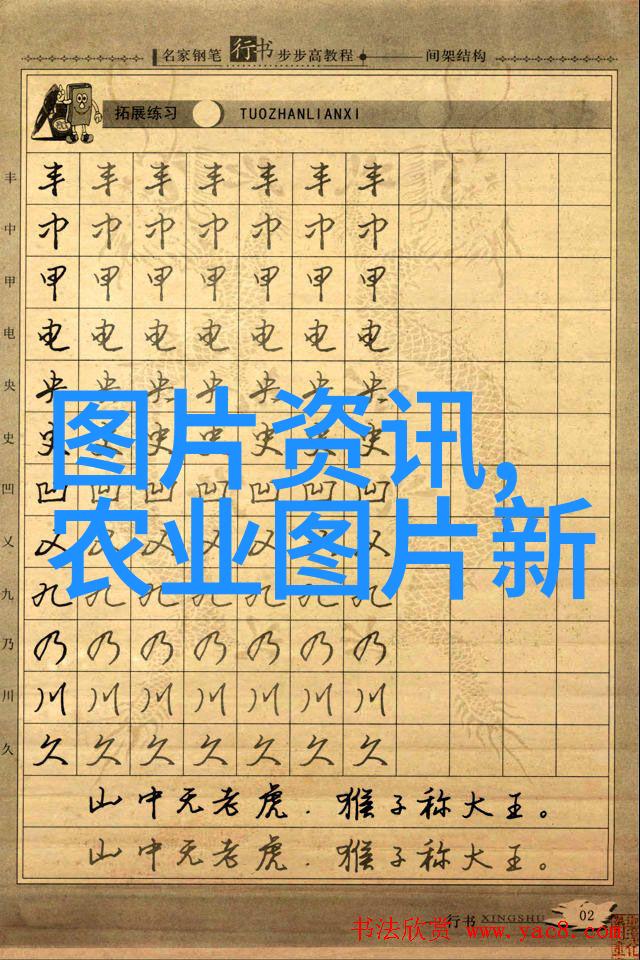 名家钢笔行书步步高教程 间架结构
拓展练习 TUOZHANLIANXI
丰 丰 丰 丰 丰 丰 丰 丰
中 中 中 中 中 中 中 中
甲 甲 甲 甲 甲 甲 甲 甲
电 电 电 电 电 电 电 电
央 央 央 央 央 央 央 央
图片资讯,
史 史 史 史 史 史 史 史
凹 凹 凹 凹 凹 凹 凹 凹
农业图片新
乂 乂 乂 乂 乂 乂 乂 乂
九 九 九 九 九 九 九 九
乃 乃 乃 乃 乃 乃 乃 乃
川 川 川 川 川 川 川 川
久 久 久 久 久 久 久 久
山中无老虎.猴子称大王。
山中无老虎.猴子称大王。
行书 XINGSHU 02
书法欣赏 www.yac8.com